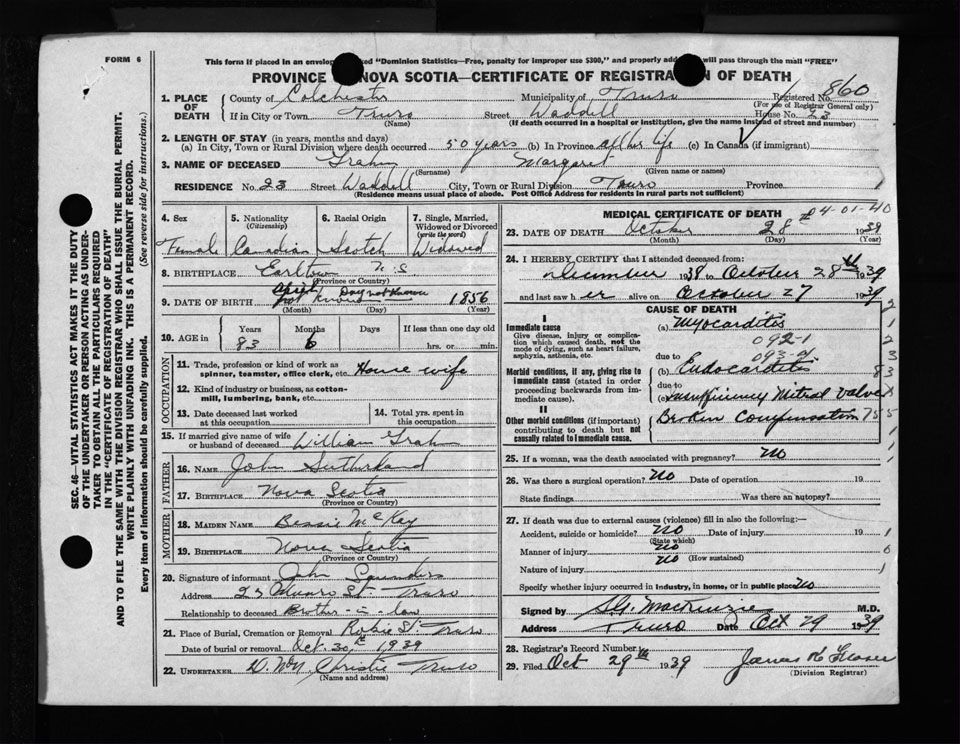 FORM 6
This form if placed in an envelop marked "Dominion Statistics—Free, penalty for improper use $300," and properly add will pass through the mail "FREE"
PROVINCE NOVA SCOTIA—CERTIFICATE OF REGISTRA N OF DEATH
860
1. PLACE OF DEATH County of Colchester Municipality of Truro Registered No.
(For use of Registrar General only)
If in City or Town Truro Street Waddell House No. 23
(Name) (If death occurred in a hospital or institution, give the name instead of street and number)
2. LENGTH OF STAY (in years, months and days)
(a) In City, Town or Rural Division where death occurred 50 years (b) In Province all her life (c) In Canada (if immigrant)
3. NAME OF DECEASED Graham Margaret
(Surname) (Given name or names)
RESIDENCE No. 23 Street Waddell City, Town or Rural Division Truro Province
(Residence means usual place of abode. Post Office Address for residents in rural parts not sufficient)
4. Sex
Female
5. Nationality
(Citizenship)
Canadian
6. Racial Origin
Scotch
7. Single, Married,
Widowed or Divorced
(write the word)
Widowed
8. BIRTHPLACE Earltown N.S.
(Province or Country)
9. DATE OF BIRTH April not known Day not Known 1856
(Month) (Day) (Year)
10. AGE in
Years Months Days If less than one day
83 6 hrs. or min.
OCCUPATION
11. Trade, profession or kind of work as
spinner, teamster, office clerk, etc. House wife
12. Kind of industry or business, as cotton-
mill, lumbering, bank, etc.
13. Date deceased last worked
at this occupation
14. Total yrs. spent in
this occupation
15. If married give name of wife
or husband of deceased William Graham
FATHER
16. NAME John Sutherland
17. BIRTHPLACE Nova Scotia
(Province or Country)
MOTHER
18. MAIDEN NAME Bessie McKay
19. BIRTHPLACE Nova Scotia
(Province or Country)
20. Signature of informant John Saunders
Address 23 Munro St. Truro
Relationship to deceased Brother-in-law
21. Place of Burial, Cremation or Removal Robie St. Truro
Date of burial or removal Oct. 30th, 1939
22. UNDERTAKER Christie Truro
(Name and address)
MEDICAL CERTIFICATE OF DEATH
4-01-40
23. DATE OF DEATH October 28 1939
(Month) (Day) (Year)
24. I HEREBY CERTIFY that I attended deceased from:
December 1938 to October 28th 1939
and last saw her alive on October 27 1939
CAUSE OF DEATH
I
Immediate cause
Give disease, injury or complica-
tion which caused death, not the
mode of dying, such as heart failure,
asphyxia, asthenia, etc.
(a) Myocarditis
092-1
093-
due to
Morbid conditions, if any, giving rise to
immediate cause (stated in order
proceeding backwards from im-
mediate cause).
(b) Endocarditis
due to
(c) Insufficiency Mitral Valve
II
Other morbid conditions (if important)
contributing to death but not
causally related to immediate cause.
Broken Compensation
25. If a woman, was the death associated with pregnancy? No
26. Was there a surgical operation? No Date of operation 19
State findings Was there an autopsy?
27. If death was due to external causes (violence) fill in also the following:—
Accident, suicide or homicide? No Date of injury 19
(State which)
Manner of injury No
(How sustained)
Nature of injury No
Specify whether injury occurred in industry, in home, or in public place No
Signed by S.G. MacKenzie M.D.
Address Truro Date Oct 29 1939
28. Registrar's Record Number
29. Filed Oct 29th 1939 James K Fraser
(Division Registrar)
SEC. 46—VITAL STATISTICS ACT MAKES IT THE DUTY
OF THE UNDERTAKER OR PERSON ACTING AS UNDER-
TAKER TO OBTAIN ALL THE PARTICULARS REQUIRED
IN THE "CERTIFICATE OF REGISTRATION OF DEATH"
AND TO FILE THE SAME WITH THE DIVISION REGISTRAR WHO SHALL ISSUE THE BURIAL PERMIT.
WRITE PLAINLY WITH UNFADING INK. THIS IS A PERMANENT RECORD.
Every item of information should be carefully supplied. (See reverse side for instructions.)